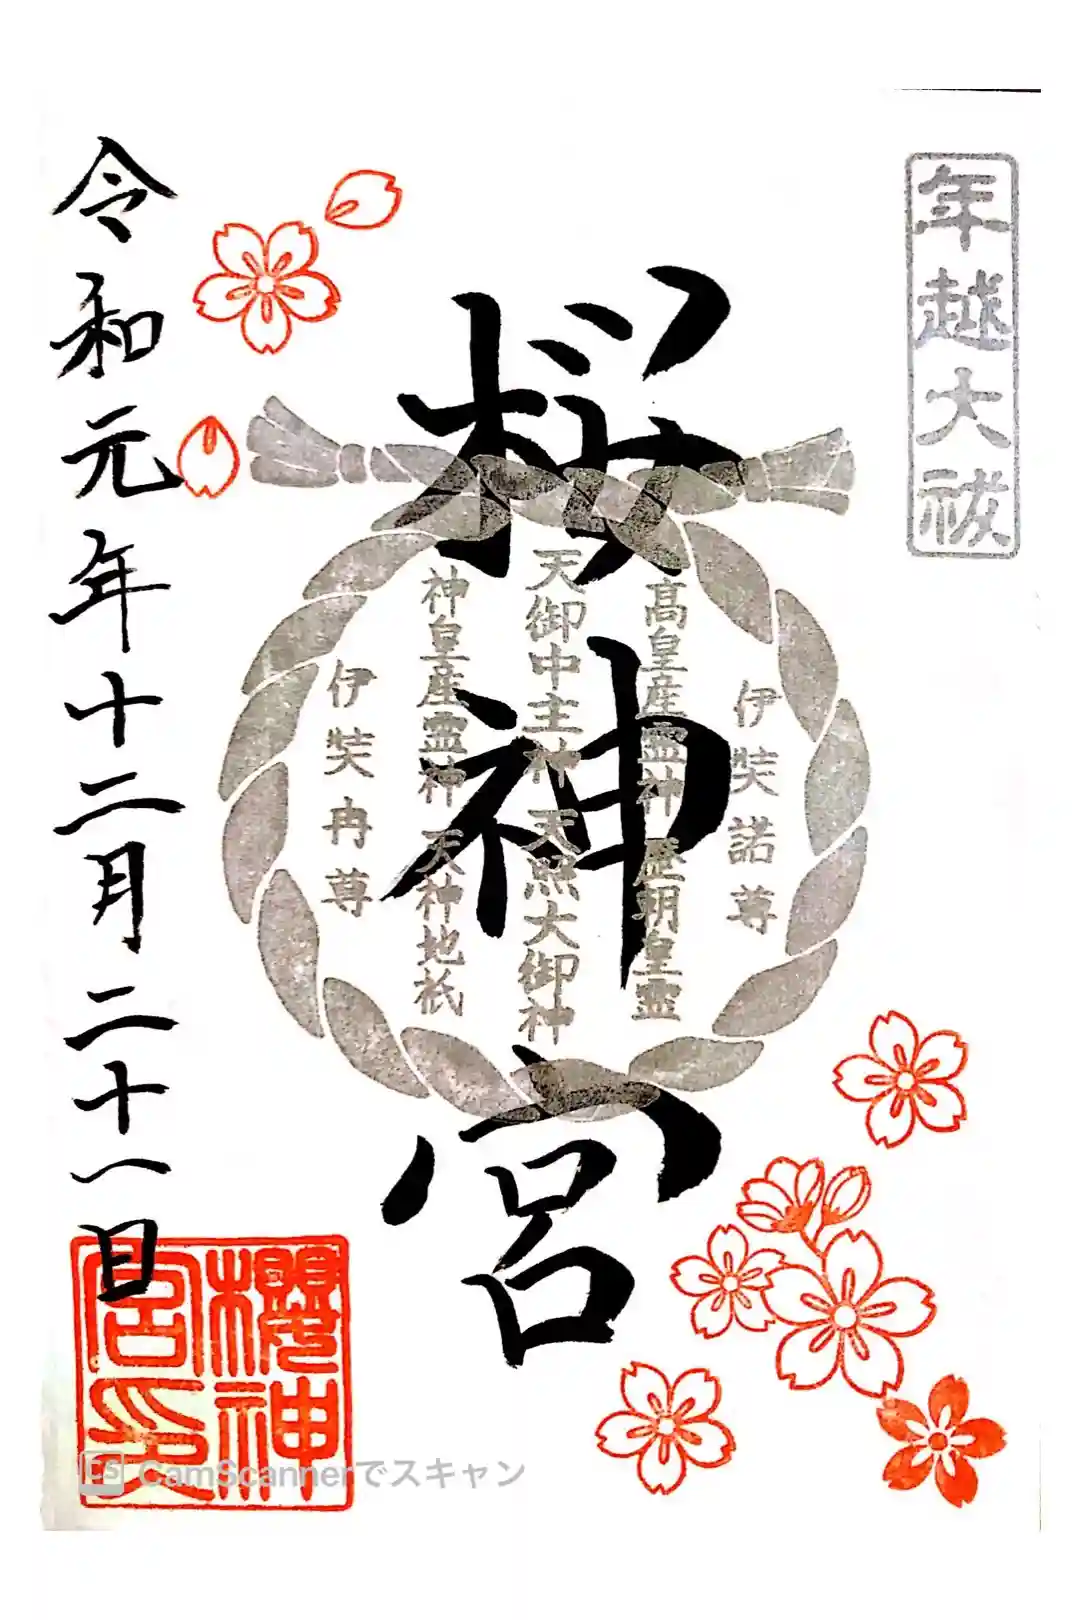 年越大祓
桜神宮
伊奘諾尊
髙皇産霊神 歴朝皇霊
天御中主神 天照大御神
神皇産霊神 天神地祇
伊奘冉尊
令和元年十二月二十八日
櫻神
宮印
CS CamScannerでスキャン